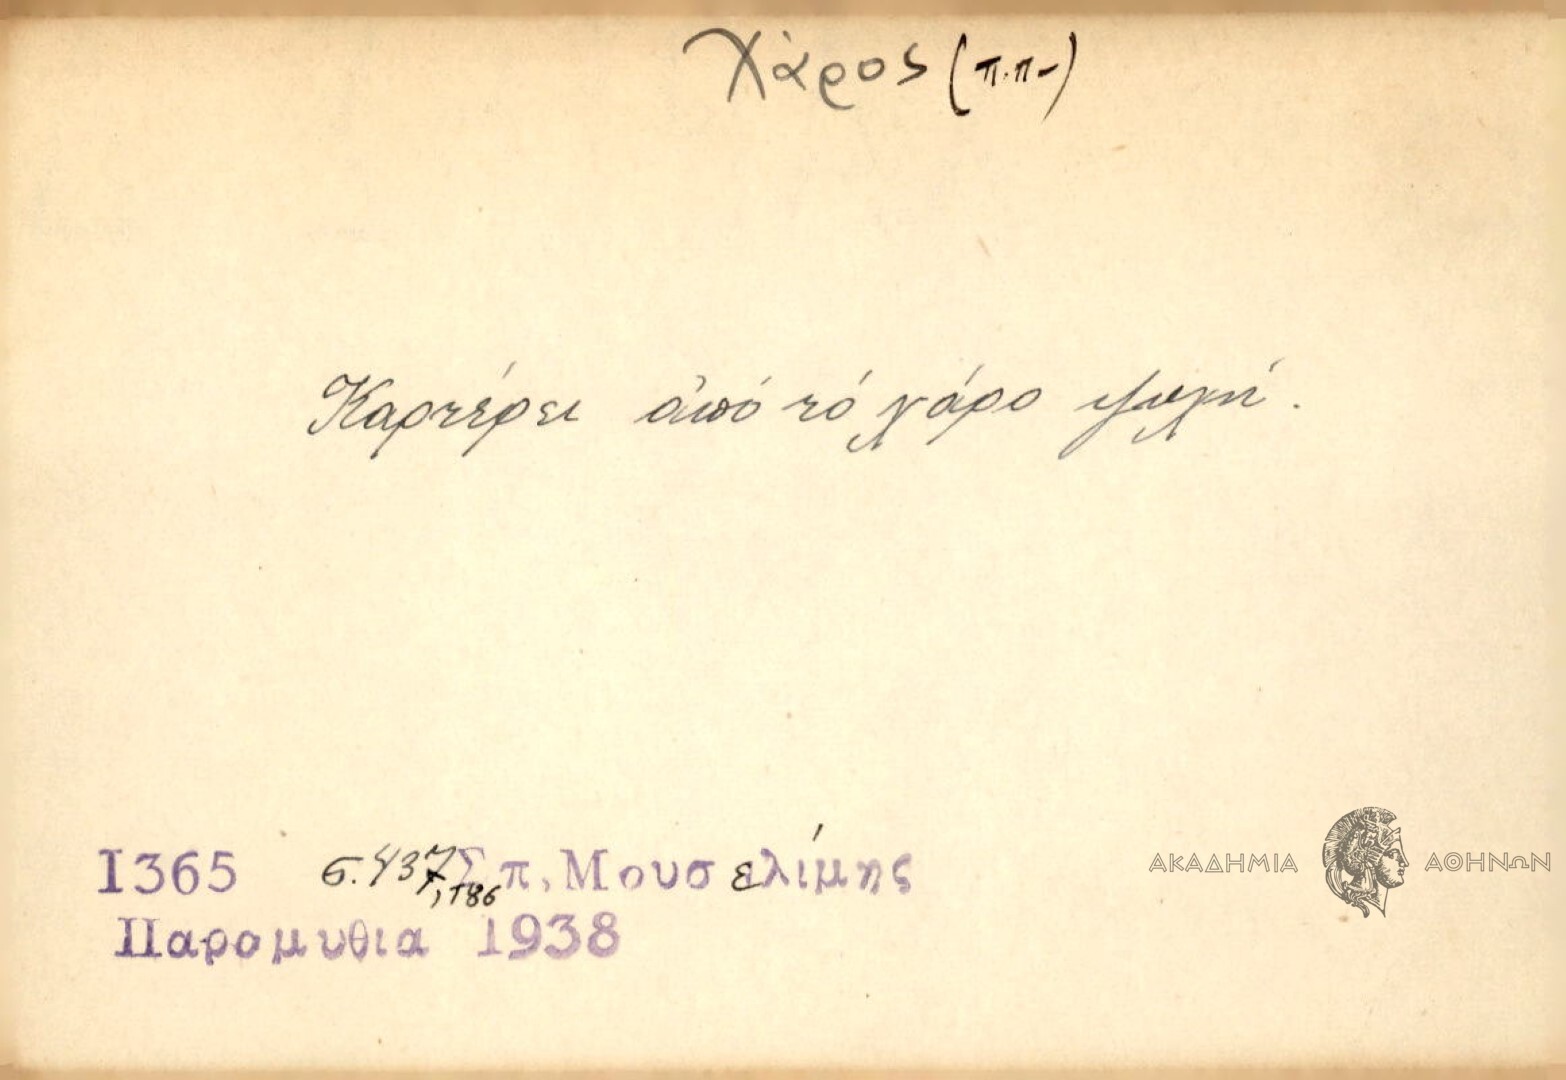 Χάρος (π.π-)
Καρτέρει ἀπό τό χάρο ψυχή.
1365 σ. 437, 186 Σπ. Μουσελίμης
Παραμυθια 1938
ΑΚΑΔΗΜΙΑ ΑΘΗΝΩΝ